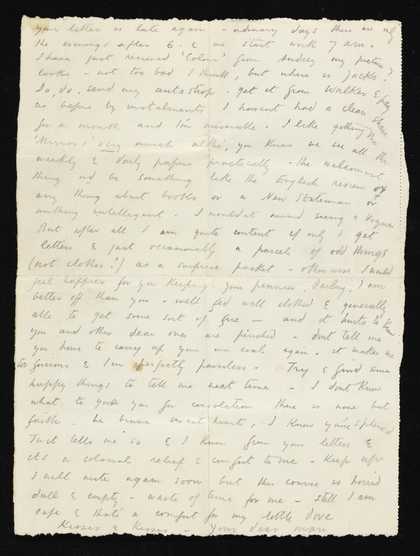 your letter is late again - ordinary days there are only
the evenings after 6 - & we start work 7 a.m.
I have just received 'Colour' from Audrey my picture?
looks - not too bad I think, but where is Jack's.
Do, do, send my autostrop. get it from Walker & pay
as before by instalments I haven't had a clean shave
for a month and I'm miserable. I like getting the
'Mirrors' very much altho' you know we see all the
weekly & daily papers practically - the welcomest
thing wd be something like the English review or
any thing about books or a New Statesman or
anything intelligent. I wouldn't mind seeing a Vogue
But after all I am quite content if only I get
letters & just occasionally a parcel of odd things
(not clothes!) as a surprise packet - otherwise I would
feel happier for you keeping your pennies, darling. I am
better off than you - well fed well clothed & generally
able to get some sort of fire - and it hurts to
you and other dear ones are pinched - dont tell me
you have to carry up your own coals again. it makes me
furious & I'm perfectly powerless. Try & find some
happy things to tell me next time - I dont know
what to give you for consolation there is none but
faith. be brave sweet heart, I know you're splendid
Just tells me so & I know from your letters &
its a colossal relief & comfort to me - Keep up
I will write again soon but this course is horrid
dull & empty - waste of time for me - still I am
safe & that's a comfort for my little dove
Kisses & Kisses - Your dear man